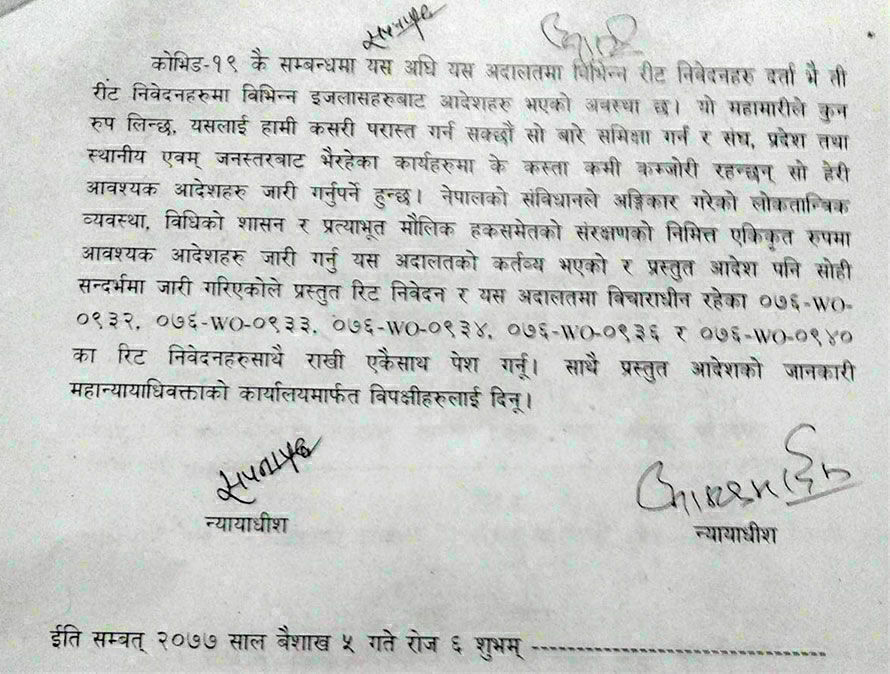 कोभिड-१९ कै सम्बन्धमा यस अघि यस अदालतमा विभिन्न रीट निवेदनहरु दर्ता भै ती
रीट निवेदनहरुमा विभिन्न इजलासहरुबाट आदेशहरु भएको अवस्था छ। यो महामारीले कुन
रुप लिन्छ, यसलाई हामी कसरी परास्त गर्न सक्छौं सो बारे समिक्षा गर्न र संघ, प्रदेश तथा
स्थानीय एवम् जनस्तरबाट भैरहेका कार्यहरुमा के कस्ता कमी कमजोरी रहन्छन् सो हेरी
आवश्यक आदेशहरु जारी गर्नुपर्ने हुन्छ। नेपालको संविधानले अङ्गिकार गरेको लोकतान्त्रिक
व्यवस्था, विधिको शासन र प्रत्याभूत मौलिक हकसमेतको संरक्षणको निमित्त एकिकृत रुपमा
आवश्यक आदेशहरु जारी गर्नु यस अदालतको कर्तव्य भएको र प्रस्तुत आदेश पनि सोही
सन्दर्भमा जारी गरिएकोले प्रस्तुत रिट निवेदन र यस अदालतमा विचाराधीन रहेका ०७६-WO-
०९३२, ०७६-WO-०९३३, ०७६-WO-०९३४, ०७६-WO-०९३६ र ०७६-WO-०९४०
का रिट निवेदनहरुसाथै राखी एकैसाथ पेश गर्नू। साथै प्रस्तुत आदेशको जानकारी
महान्यायाधिवक्ताको कार्यालयमार्फत विपक्षीहरुलाई दिनू।
न्यायाधीश
न्यायाधीश
ईति सम्बत् २०७७ साल बैशाख ५ गते रोज ६ शुभम् -------------------------------